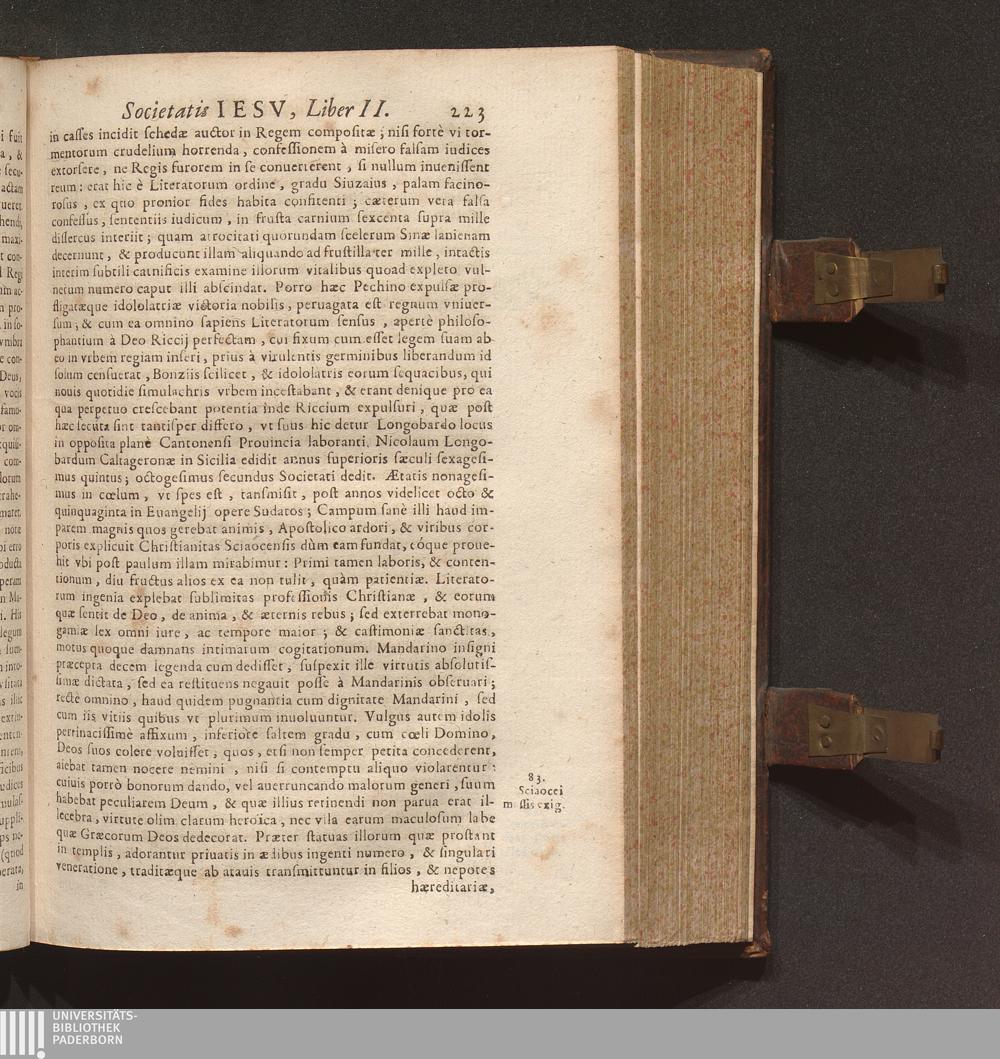 Societatis IESV, Liber II. 223
in casses incidit schedæ auctor in Regem compositæ; nisi fortè vi tor-
mentorum crudelium horrenda, confessionem à misero falsam iudices
extorsere, ne Regis furorem in se conuerterent, si nullum inuenissent
reum: erat hic è Literatorum ordine, gradu Siuzaius, palam facino-
rosus, ex quo pronior fides habita confitenti; cæterum vera falsa
confessus, sententiis iudicum, in frusta carnium sexcenta supra mille
dissectus interiit; quam atrocitati quorundam scelerum Sinæ lanienam
decernunt, & producunt illam aliquando ad frustilla ter mille, intactis
interim subtili carnificis examine illorum vitalibus quoad expleto vul-
nerum numero caput illi abscindat. Porro hæc Pechino expulsæ pro-
fligatæque idololatriæ victoria nobilis, peruagata est regnum vniuer-
sum; & cum ea omnino sapiens Literatorum sensus, apertè philoso-
phantium à Deo Riccij perfectam, cui fixum cum esset legem suam ab
eo in vrbem regiam inseri, prius à virulentis germinibus liberandum id
solum censuerat, Bonziis scilicet, & idololatris eorum sequacibus, qui
nouis quotidie simulachris vrbem incestabant, & erant denique pro ea
qua perpetuo crescebant potentia inde Riccium expulsuri, quæ post
hæc secuta sint tantisper differo, vt suus hic detur Longobardo locus
in opposita planè Cantonensi Prouincia laboranti. Nicolaum Longo-
bardum Caltageronæ in Sicilia edidit annus superioris sæculi sexagesi-
mus quintus; octogesimus secundus Societati dedit. Ætatis nonagesi-
mus in cœlum, vt spes est, tansmisit, post annos videlicet octo &
quinquaginta in Euangelij opere Sudatos; Campum sanè illi haud im-
parem magnis quos gerebat animis, Apostolico ardori, & viribus cor-
poris explicuit Christianitas Sciaocensis dùm eam fundat, cóque proue-
hit vbi post paulum illam mirabimur: Primi tamen laboris, & conten-
tionum, diu fructus alios ex ea non tulit, quàm patientiæ. Literato-
rum ingenia explebat sublimitas professionis Christianæ, & eorum
quæ sentit de Deo, de anima, & æternis rebus; sed exterrebat mono-
gamiæ lex omni iure, ac tempore maior; & castimoniæ sanctitas,
motus quoque damnans intimarum cogitationum. Mandarino insigni
præcepta decem legenda cum dedisset, suspexit ille virtutis absolutis-
simæ dictata, sed ea restituens negauit posse à Mandarinis obseruari;
rectè omnino, haud quidem pugnantia cum dignitate Mandarini, sed
cum iis vitiis quibus vt plurimum inuoluuntur. Vulgus autem idolis
pertinacissimè affixum, inferiore saltem gradu, cum cœli Domino,
Deos suos colere voluisset, quos, etsi non semper petita concederent,
aiebat tamen nocere nemini, nisi si contemptu aliquo violarentur:
cuiuis porrò bonorum dando, vel auerruncando malorum generi, suum
habebat peculiarem Deum, & quæ illius retinendi non parua erat il-
lecebra, virtute olim clarum heroica, nec vlla earum maculosum labe
quæ Græcorum Deos dedecorat. Præter statuas illorum quæ prostant
in templis, adorantur priuatis in ædibus ingenti numero, & singulari
veneratione, traditæque ab atauis transmittuntur in filios, & nepotes
hæreditariæ,
83.
Sciaocei
missis exig.
UNIVERSITÄTS-
BIBLIOTHEK
PADERBORN